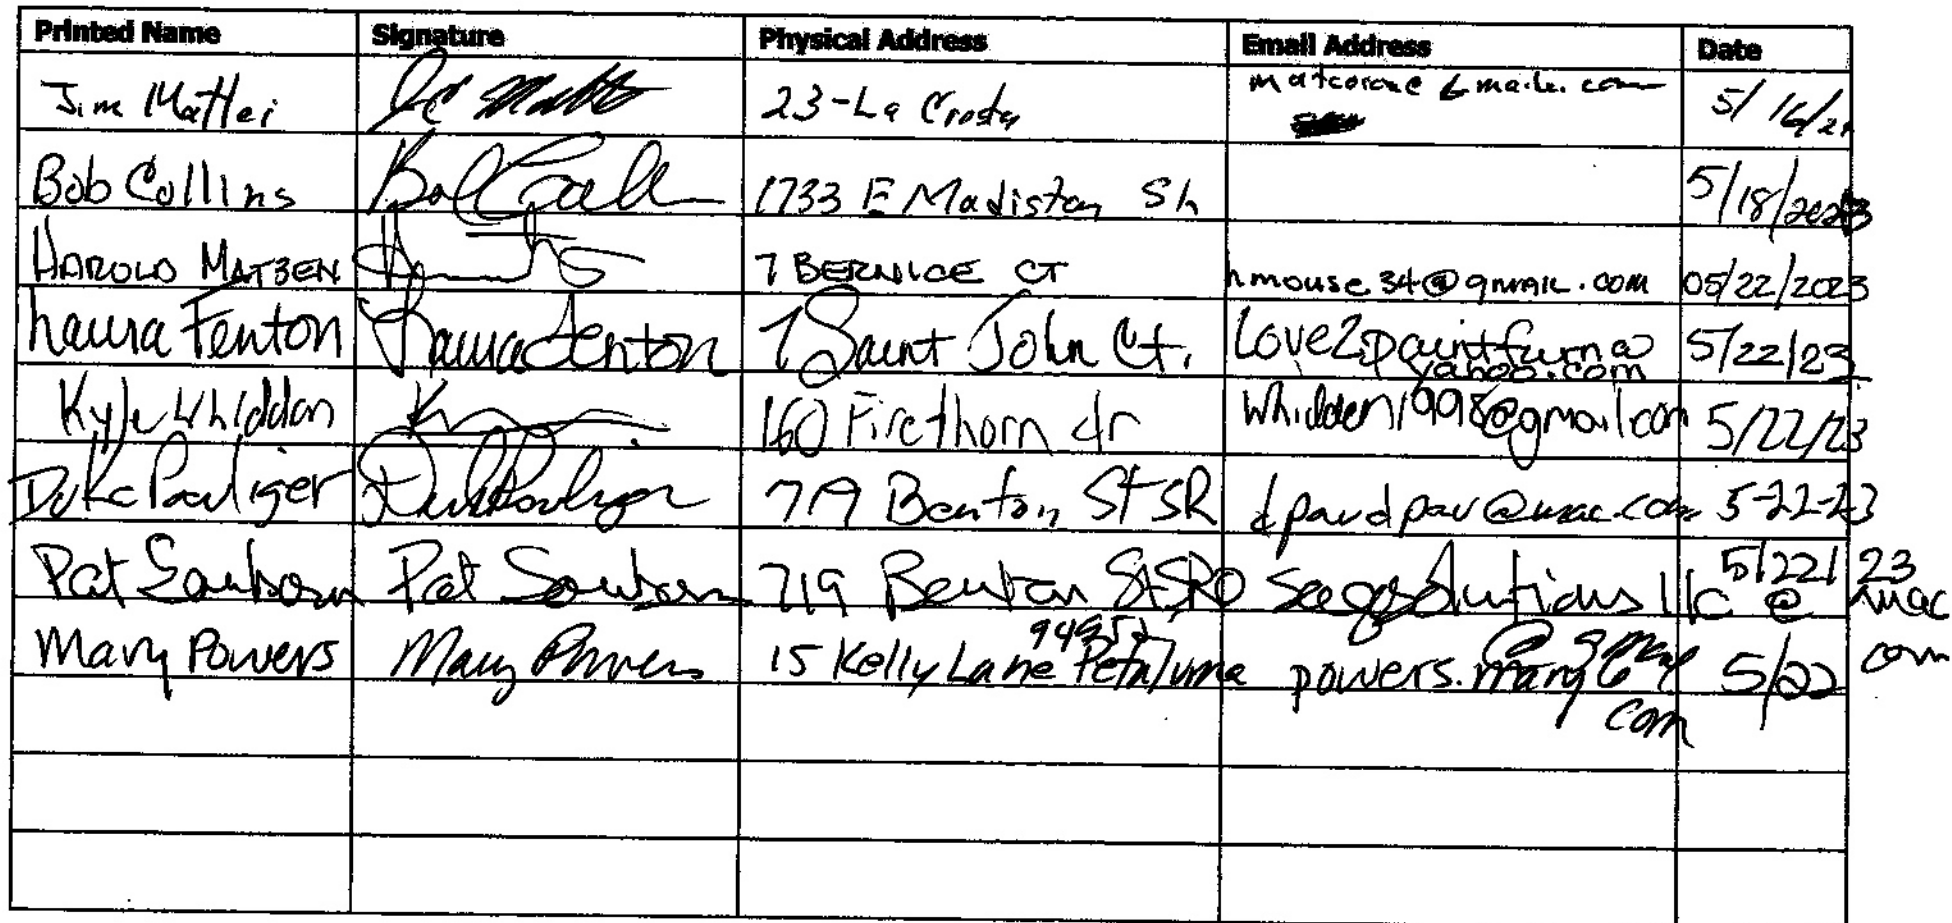 Printed Name Signature Physical Address Email Address Date
Jim Mattei 23-La Crosta 5/16/2
Bob Collins Bob Colln 1733 E Madiston Sh 5/18/2023
HAROLD MATZEN 7 BERNICE CT hmouse34@gmail.com 05/22/2023
Laura Fenton Laura Fenton 7 Saint John Ct. Love2paintfurn@ 5/22/23
yahoo.com
Kyle Whiddon 160 Firethorn dr whidden1998@gmailcom 5/22/23
719 Benton St SR dpaudpav@mac.com 5-22-23
Pat Sanborn Pat Sanborn 719 Benton St SRO llc @ mac 5/22/23
com
94952
Mary Powers Mary Powers 15 Kelly Lane Petaluma powers.mary6 @gmail 5/22
com